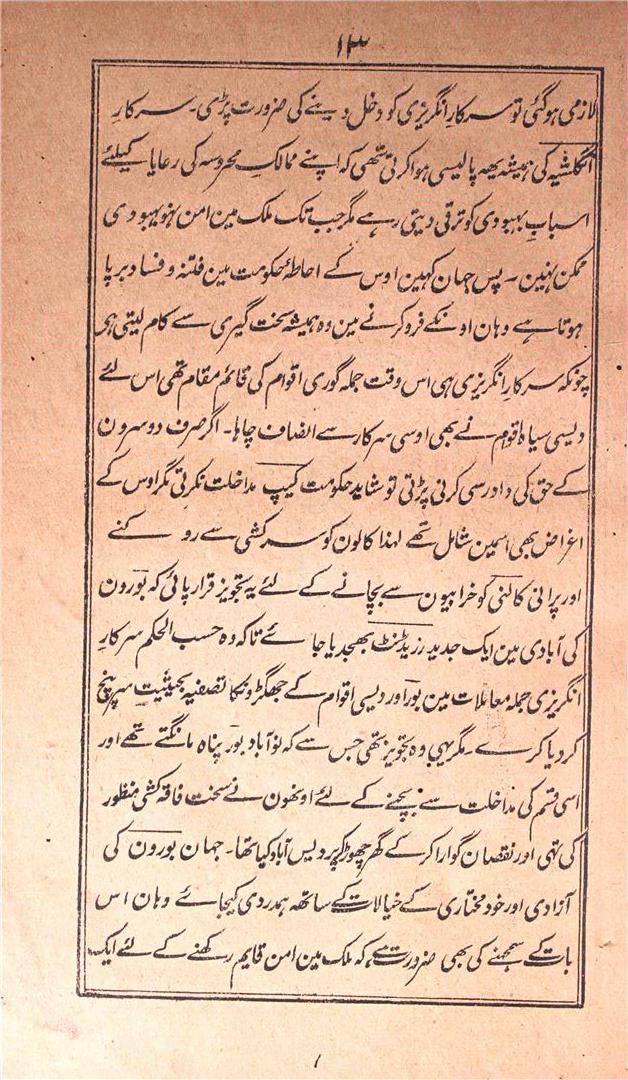 ۱۳
لازمی ہوگئی تو سرکار انگریزی کو دخل دینے کی ضرورت پڑی۔ سرکارِ
انگلشیہ کی ہمیشہ یہہ پالیسی ہوا کرتی تھی کہ اپنے ممالکِ محروسہ کی رعایا کیلئے
اسبابِ بہبودی کو ترقی دیتی رہے مگر جب تک ملک مین امن نہو بہبودی
ممکن نہین ۔ پس جہان کہین اوس کے احاطۂ حکومت مین فتنہ و فساد برپا
ہوتا ہے وہان اونکے فرو کرنے مین وہ ہمیشہ سخت گیری سے کام لیتی ہی
چونکہ سرکار انگریزی ہی اس وقت جملہ گوری اقوام کی قائم مقام تھی اس لئے
دیسی سیاہ اقوام نے بھی اوسی سرکار سے انصاف چاہا۔ اگر صرف دوسرون
کے حق کی دادرسی کرنی پڑتی تو شاید حکومت کیپ مداخلت نکرتی مگر اوس کے
اغراض بھی اسمین شامل تھے لہذا کالون کو سرکشی سے روکنے
اور پرانی کالنی کو خرابیون سے بچانے کے لئے یہ تجویز قرار پائی کہ بورون
کی آبادی مین ایک جدید رزیڈنٹ بھیجدیا جائے تاکہ وہ حسب الحکم سرکارِ
انگریزی جملہ معاملات مین بور اور دیسی اقوام کے جھگڑونکا تصفیہ بحیثیتِ سرپنچ
کردیا کرے ۔ مگر یہی وہ تجویز تھی جس سے کہ نوآباد بور پناہ مانگتے تھے اور
اسی قسم کی مداخلت سے بچنے کے لئے اونھون نے سخت فاقہ کشی منظور
کی تہی اور نقصان گوارا کرکے گھر چھوڑ کر پردیس آباد کیا تھا۔ جہان بورون کی
آزادی اور خود مختاری کے خیالات کے ساتھ ہمدردی کیجائے وہان اس
بات کے سمجھنے کی بھی ضرورت ہے کہ ملک مین امن قایم رکھنے کے لئے ایک